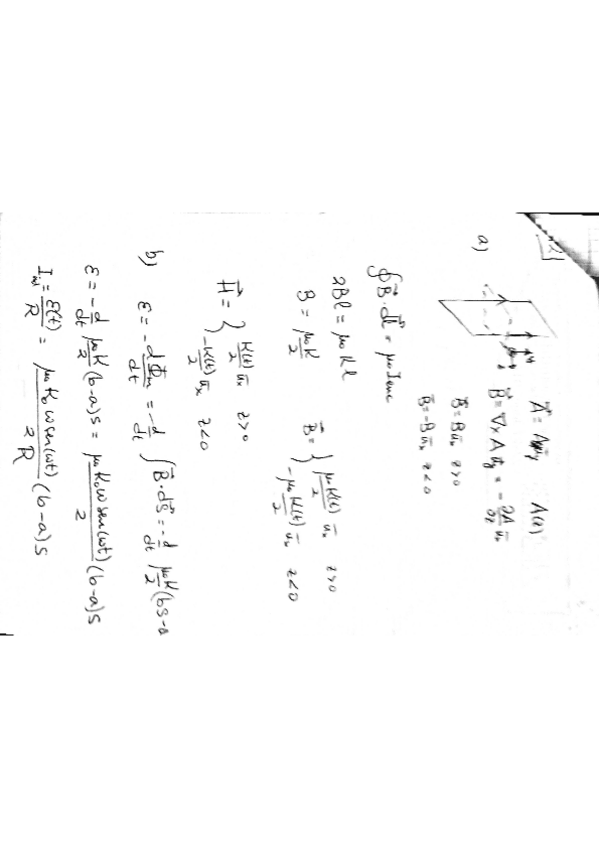 2
a)
A⃗ = A u̅y A(z)
B⃗ = ∇ × A u̅y = - ∂A/∂z u̅x
B⃗ = B u̅x z>0
B⃗ = -B u̅x z<0
∮ B⃗ · dl⃗ = μ₀ Ienc
2Bl = μ₀ K l
B = μ₀K/2
B⃗ = { μ₀K(t)/2 u̅x z>0
-μ₀K(t)/2 u̅x z<0
H⃗ = { K(t)/2 u̅x z>0
-K(t)/2 u̅x z<0
b) ε = - dΦm/dt = - d/dt ∫ B⃗ · dS⃗ = - d/dt μ₀K/2 (bs-a
ε = - d/dt μ₀K/2 (b-a)s = μ₀K₀ω sen(ωt)/2 (b-a)s
Iind = ε(t)/R = μ₀K₀ω sen(ωt)/2R (b-a)s